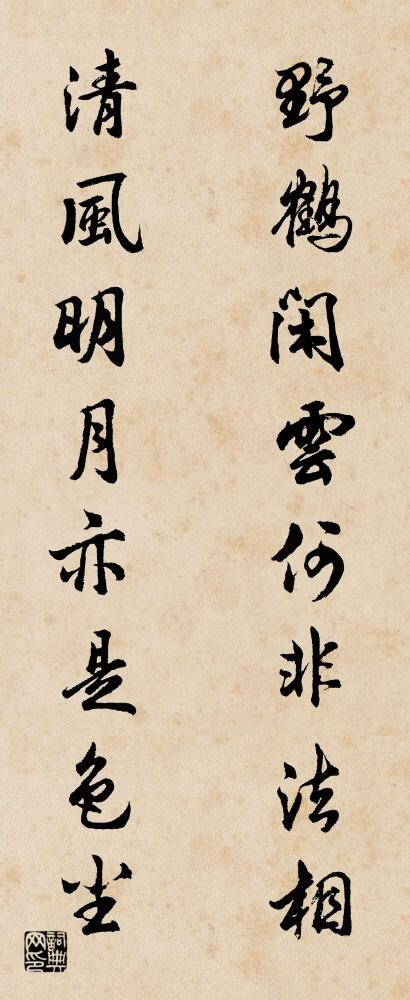 野鶴閑雲何非法相
清風明月亦是色尘
詞典
网印